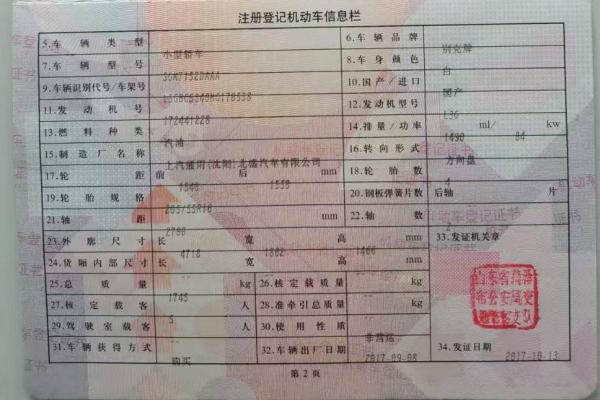 注册登记机动车信息栏
5.车辆类型 小型轿车 6.车辆品牌 别克牌
7.车辆型号 SGM7152DAAA 8.车身颜色 白
9.车辆识别代号/车架号 10.国产/进口 国产
11.发动机号 172441228 12.发动机型号 L3G
13.燃料种类 汽油 14.排量/功率 1490 ml/ 84 kw
15.制造厂名称 上汽通用(沈阳)北盛汽车有限公司 16.转向形式 方向盘
17.轮距 前 1548 后 1558 mm 18.轮胎数 4
19.轮胎规格 205/55R16 20.钢板弹簧片数 后轴 片
21.轴距 2700 mm 22.轴数 2
23.外廓尺寸 长 4718 宽 1802 高 1466 mm 33.发证机关章
24.货厢内部尺寸 长 宽 高 mm
25.总质量 1745 kg 26.核定载质量 kg
27.核定载客 5 人 28.准牵引总质量 kg
29.驾驶室载客 人 30.使用性质 非营运
31.车辆获得方式 购买 32.车辆出厂日期 2017-09-08 34.发证日期 2017-10-13
第2页